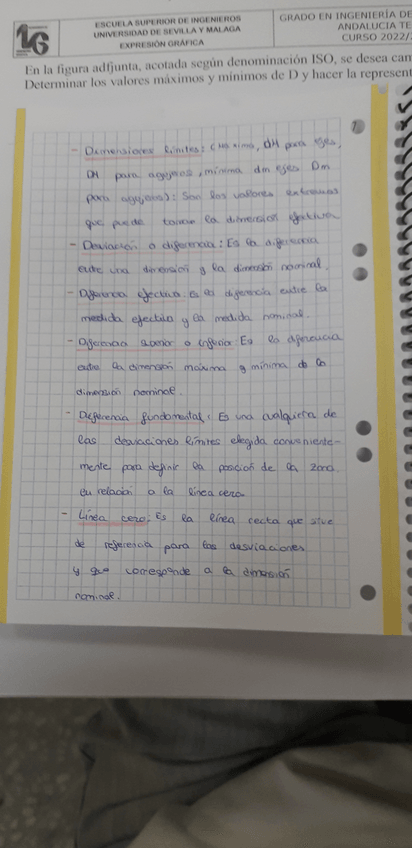 ESCUELA SUPERIOR DE INGENIEROS
UNIVERSIDAD DE SEVILLA Y MALAGA
EXPRESIÓN GRÁFICA
GRADO EN INGENIERÍA DE
ANDALUCIA TE
CURSO 2022/
En la figura adfjunta, acotada según denominación ISO, se desea can
Determinar los valores máximos y mínimos de D y hacer la represent
- Dimensiones límites: (máxima, dM para ejes,
DM para agujeros, mínima dm ejes Dm
para agujeros): Son los valores extremos
que puede tomar la dimensión efectiva
- Desviación o diferencia: Es la diferencia
entre una dimensión y la dimensión nominal.
- Diferencia efectiva: Es la diferencia entre la
medida efectiva y la medida nominal.
- Diferencia superior o inferior: Es la diferencia
entre la dimensión máxima y mínima de la
dimensión nominal.
- Diferencia fundamental: Es una cualquiera de
las desviaciones límites elegida conveniente-
mente para definir la posición de la zona
en relación a la línea cero.
- Línea cero: Es la línea recta que sirve
de referencia para las desviaciones
y que corresponde a la dimensión
nominal.